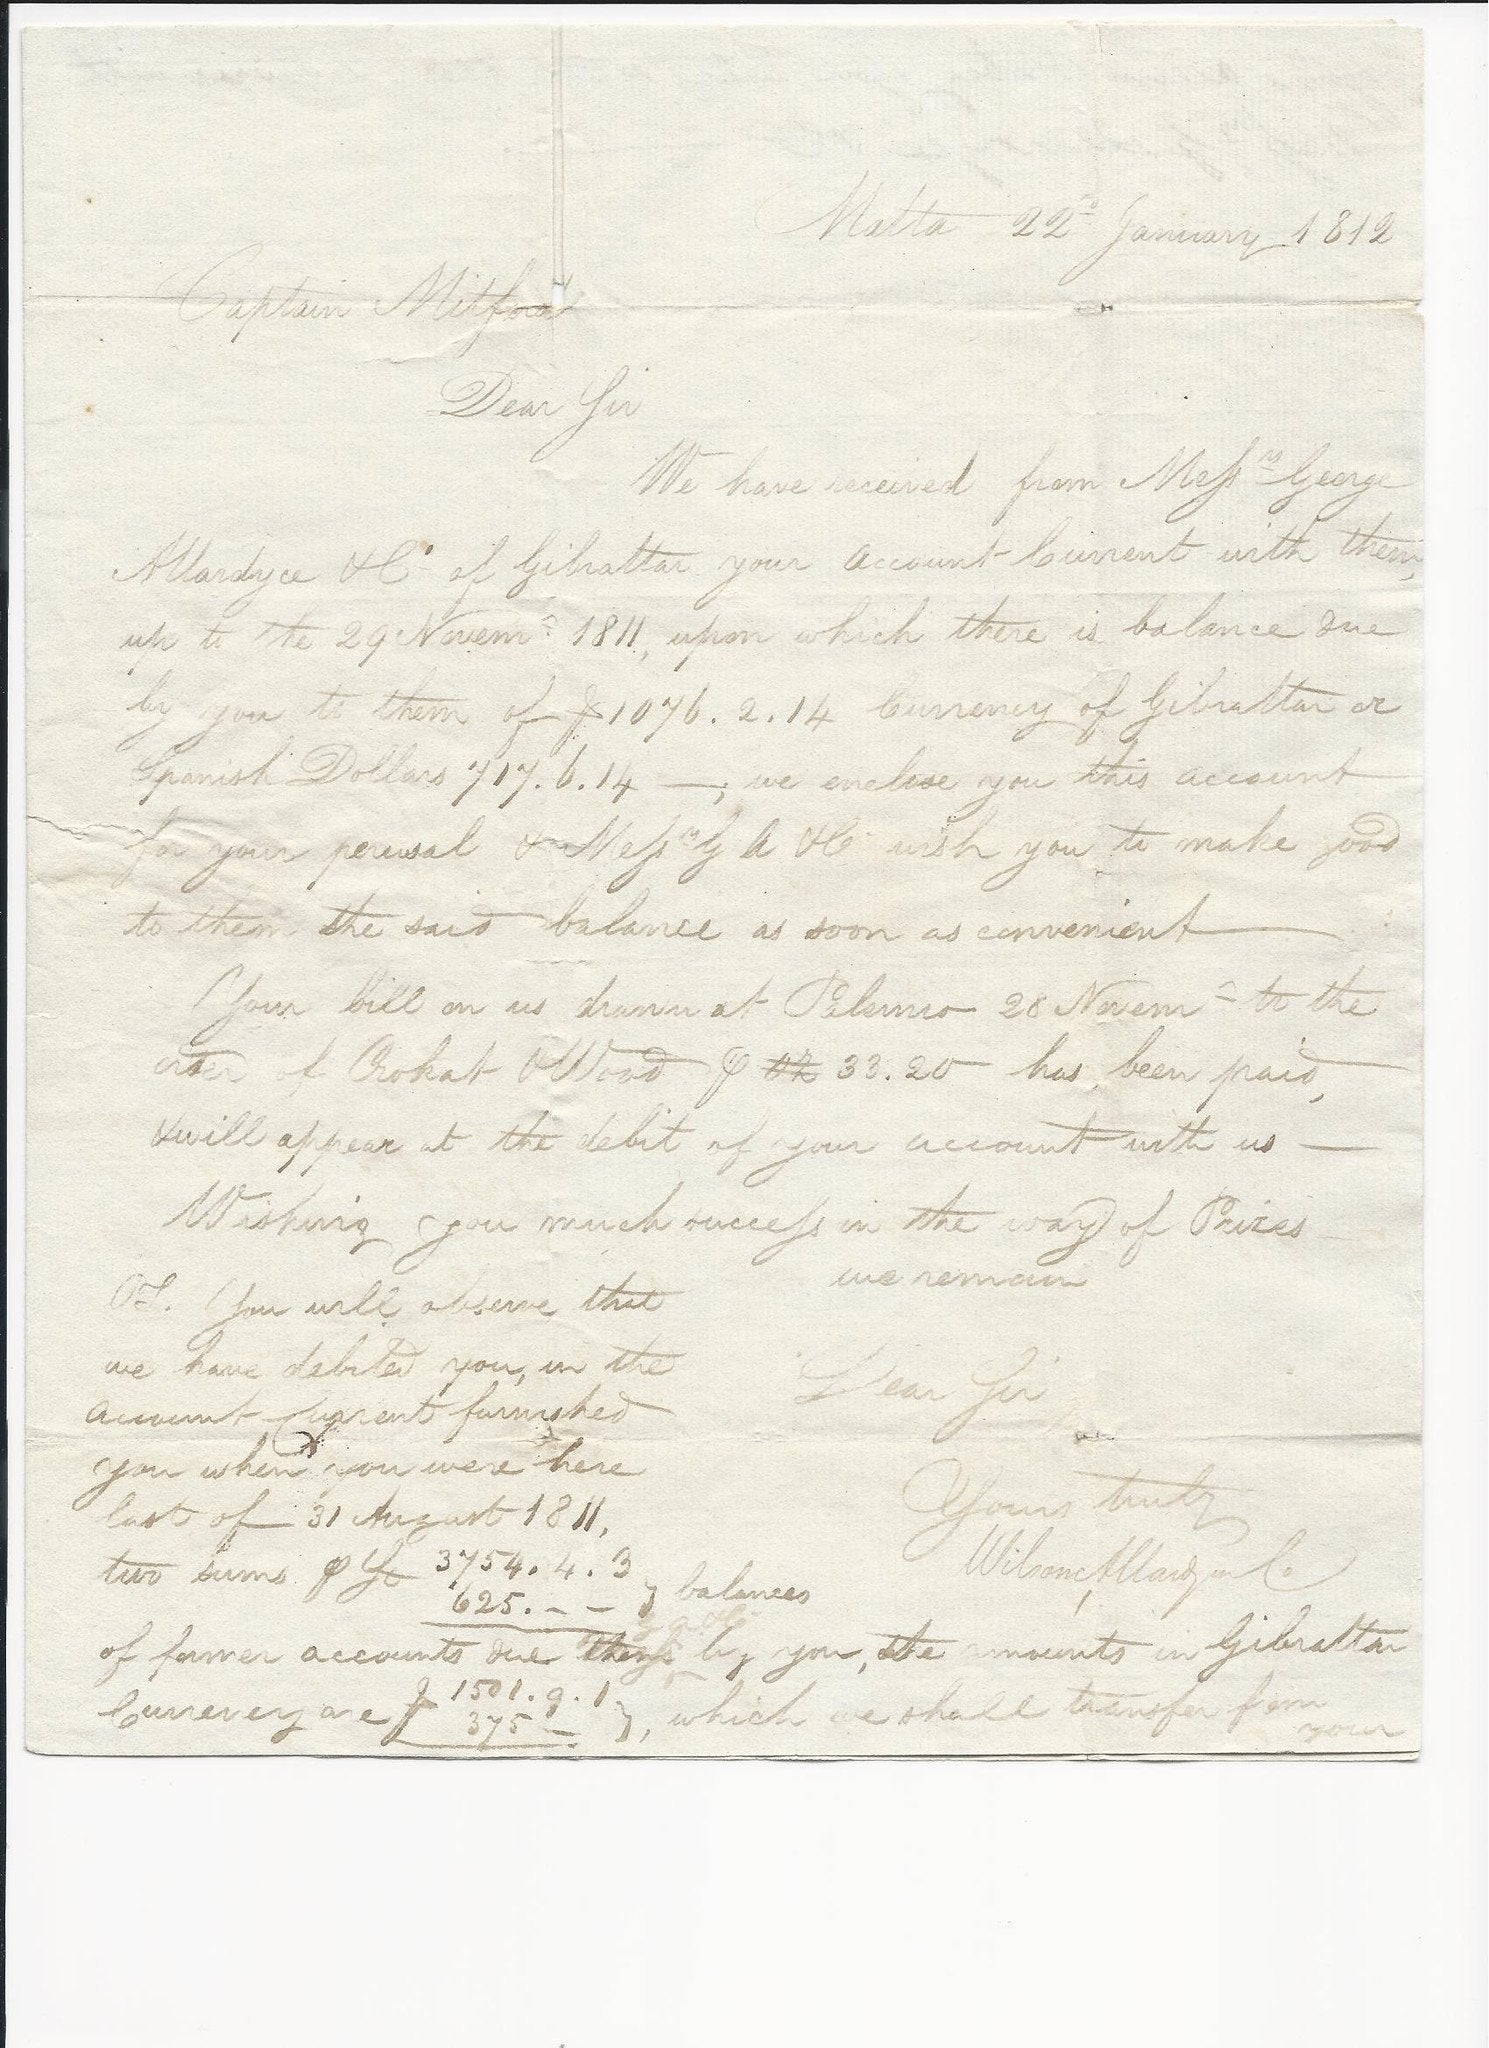 Malta 22d January 1812
Captain Mitford
Dear Sir
We have received from Messrs George
Allardyce & Co of Gibraltar your Account Current with them,
up to the 29 Novemr 1811, upon which there is balance due
by you to them of $1076.2.14 Currency of Gibraltar or
Spanish Dollars 717.6.14 —, we enclose you this account
for your perusal & Messrs G A & Co wish you to make good
to them the said balance as soon as convenient —
Your bill on us drawn at Palermo 28 Novemr to the
order of Crokat & Wood 33.20 has been paid,
& will appear at the debit of your account with us —
Wishing you much success in the way of Prizes
we remain
Dear Sir
Yours truly
Wilson, Allardyce & Co
PS. You will observe that
we have debited you, in the
Account Current furnished
you when you were here
last of 31 August 1811,
two sums 3754.4.3
625. – – } balances
of former accounts due G A & Co by you, the amounts in Gibraltar
Currency are $ 1501.9.1
375 – }, which we shall transfer from
your